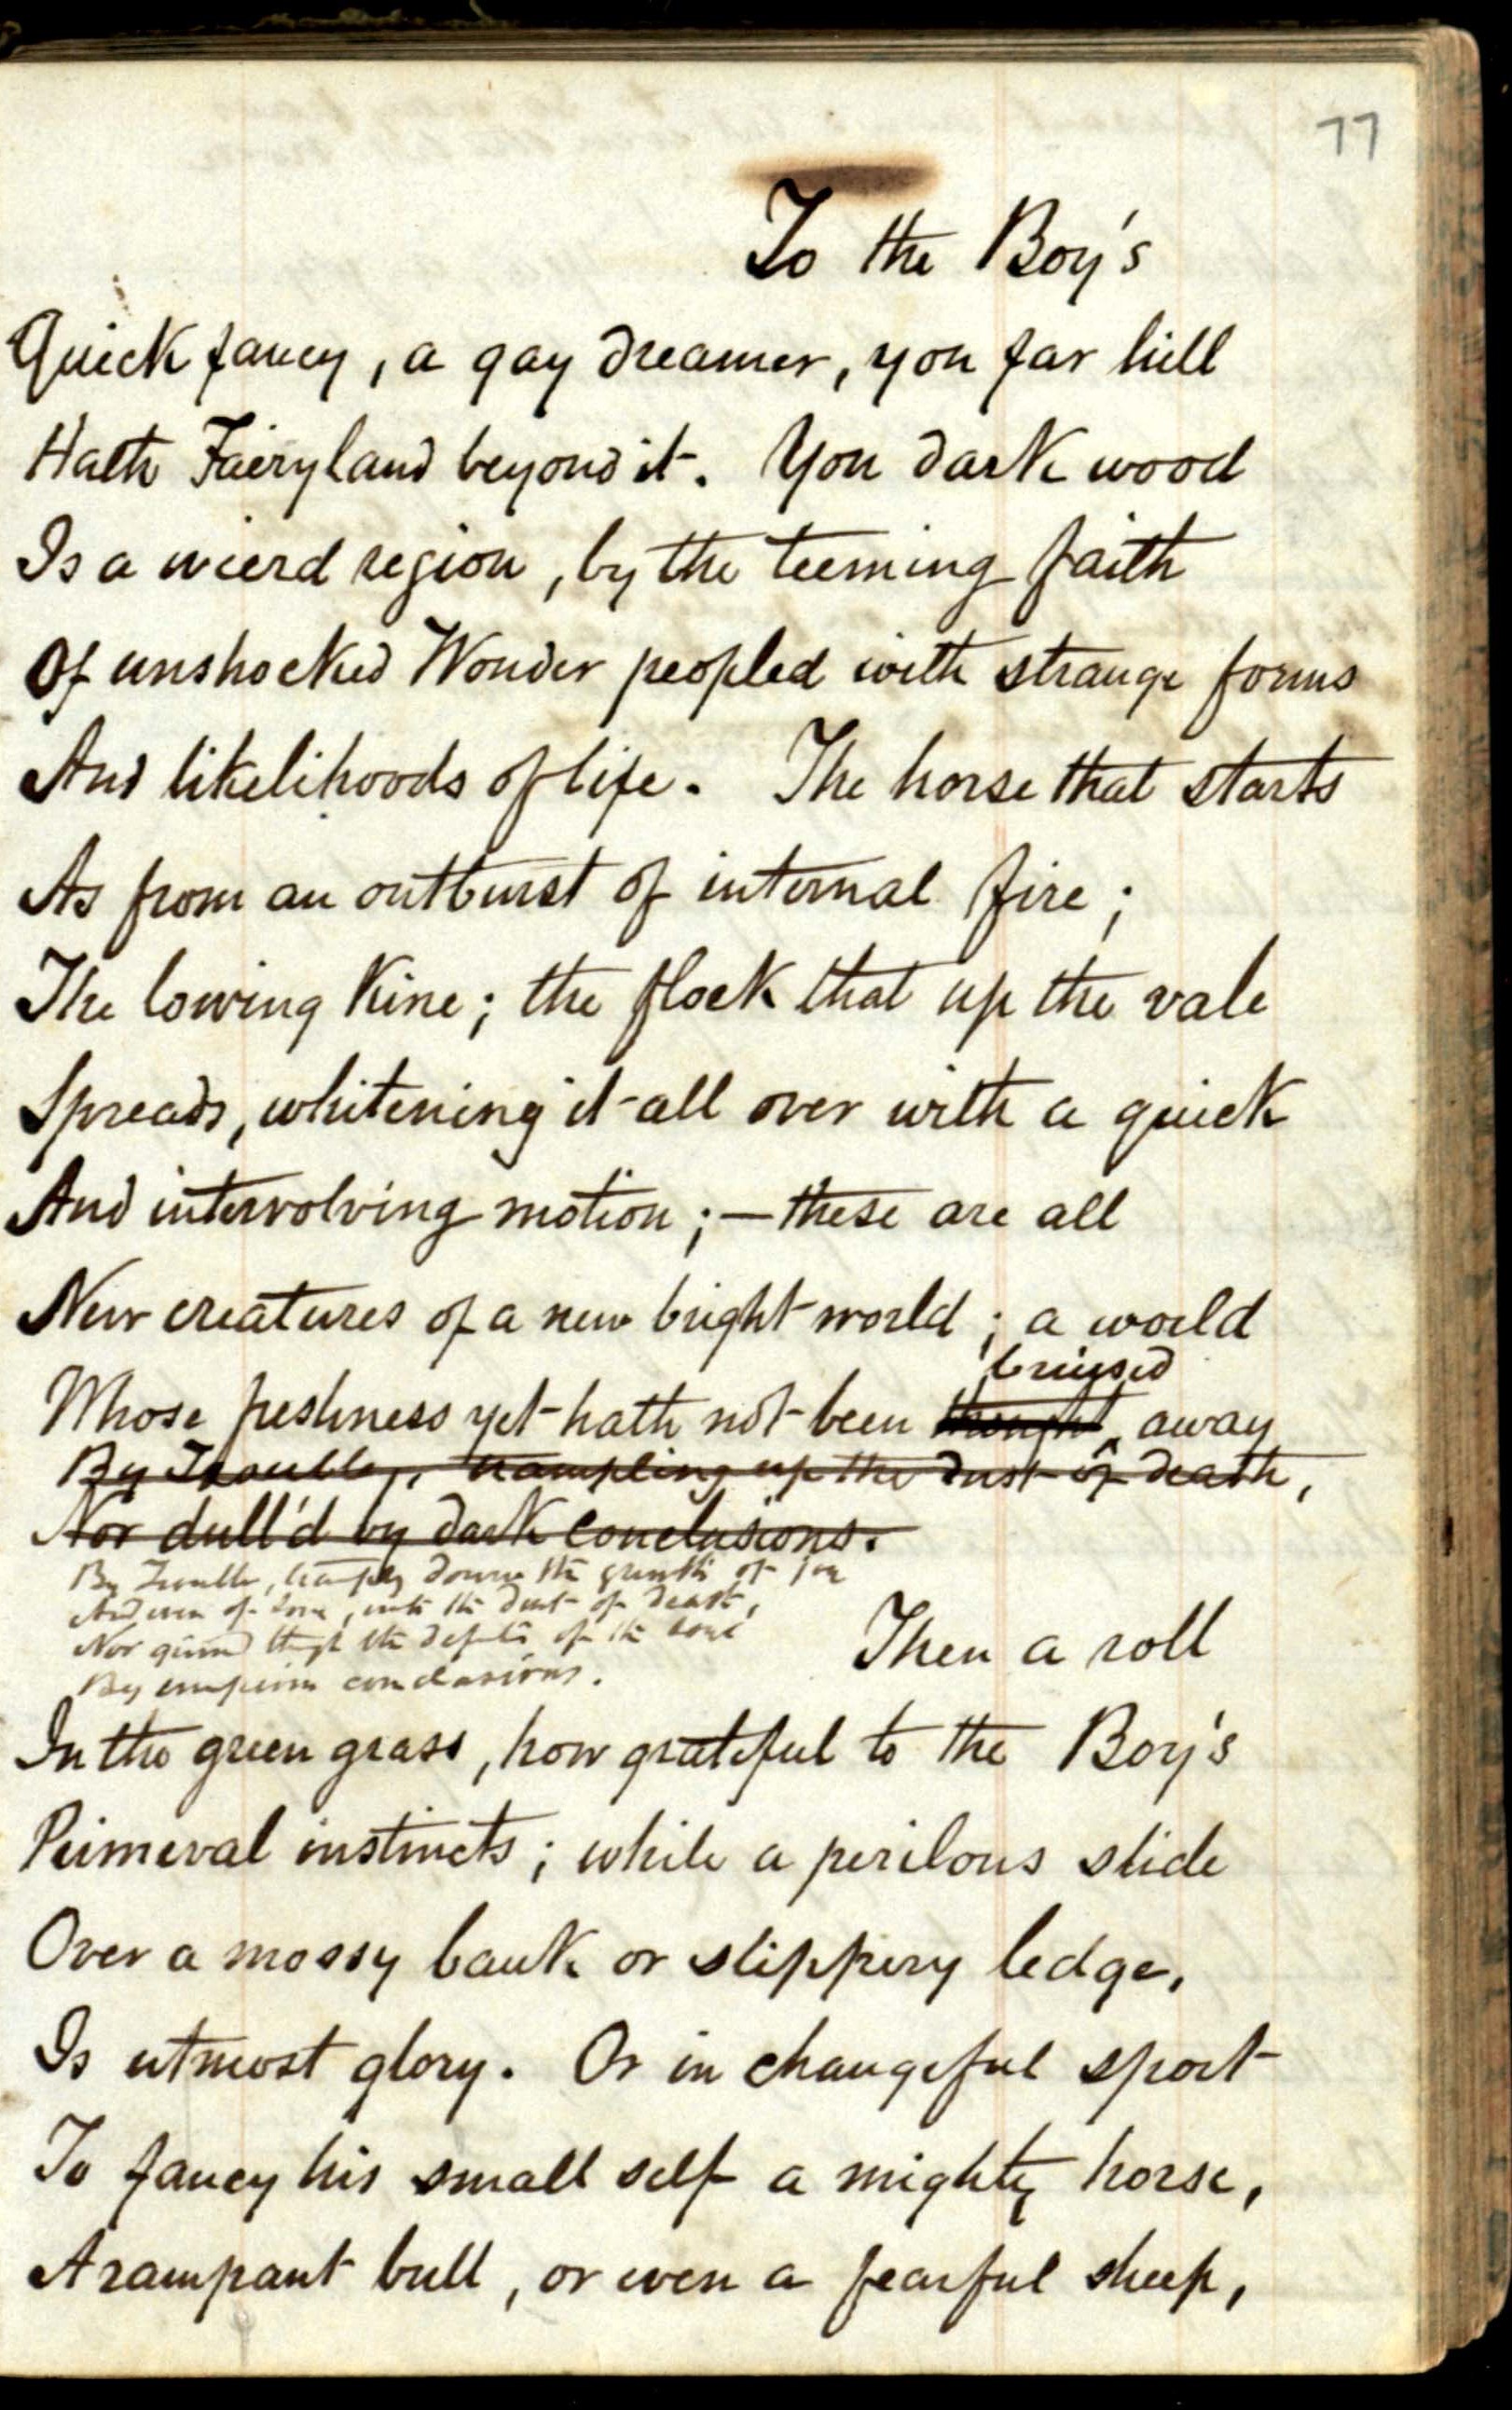 77
To the Boy's
Quick fancy, a gay dreamer, yon far hill
Hath Fairyland beyond it. Yon dark wood
Is a wierd region, by the teeming faith
Of unshocked Wonder peopled with strange forms
And likelihoods of life. The horse that starts
As from an outburst of internal fire;
The lowing kine; the flock that up the vale
Spreads, whitening it all over with a quick
And intervolving motion;—these are all
New creatures of a new bright world; a world
bruised
Whose freshness yet hath not been away
By Trouble, trampling up the dust of death,
Nor dull'd by dark conclusions.
By Trouble, down the growth of joy
And even of love, into the dust of death,
Nor the depths of the soul
By conclusions.
Then a roll
In the green grass, how grateful to the Boy's
Primeval instincts; while a perilous slide
Over a mossy bank or slippery ledge,
Is utmost glory. Or in changeful sport
To fancy his small self a mighty horse,
A rampant bull, or even a fearful sheep,